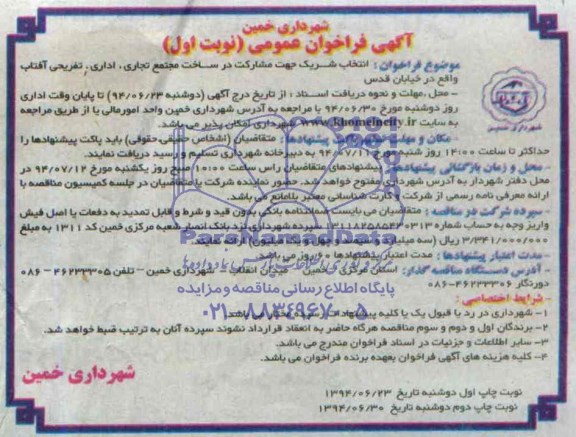 شهرداری خمین
آگهی فراخوان عمومی (نوبت اول)
موضوع فراخوان : انتخاب شریک جهت مشارکت در ساخت مجتمع تجاری ، اداری ، تفریحی آفتاب
واقع در خیابان قدس
- محل ،مهلت و نحوه دریافت اسناد : از تاریخ درج آگهی (دوشنبه ۹۴/۰۶/۲۳) تا پایان وقت اداری
روز دوشنبه مورخ ۹۴/۰۶/۳۰ با مراجعه به آدرس شهرداری خمین واحد امورمالی یا از طریق مراجعه
به سایت www.khomeincity.ir شهرداری امکان پذیر می باشد.
شهرداری خمین
- مکان و مهلت پیشنهادها : متقاضیان (اشخاص حقیقی،حقوقی) باید پاکت پیشنهادها را
حداکثر تا ساعت ۱۴:۰۰ روز شنبه مورخ ۹۴/۰۷/۱۱ به دبیرخانه شهرداری تسلیم و رسید دریافت نمایند.
- محل و زمان بازگشائی پیشنهادها : پیشنهادهای متقاضیان راس ساعت ۱۰:۰۰ صبح روز یکشنبه مورخ ۹۴/۰۷/۱۲ در
محل دفتر شهردار به آدرس شهرداری مفتوح خواهد شد. حضور نماینده شرکت یا متقاضیان در جلسه کمیسیون مناقصه با
ارائه معرفی نامه رسمی از شرکت و کارت شناسائی معتبر بلامانع می باشد.
- سپرده شرکت در مناقصه : متقاضیان می بایست ضمانتنامه بانکی بدون قید و شرط و قابل تمدید به دفعات یا اصل فیش
واریز وجه به حساب شماره سپرده شهرداری نزد بانک انصار شعبه مرکزی خمین کد ۱۳۱۱ به مبلغ
۳/۳۴۱/۰۰۰/۰۰۰ ریال (سه میلیارد و سیصد و چهل و یک میلیون ریال) ارائه نمایند.
- مدت اعتبار پیشنهادها : مدت اعتبار پیشنهادها ۶۰ روز می باشد.
- آدرس دستگاه مناقصه گذار: استان مرکزی - خمین - میدان انقلاب - شهرداری خمین - تلفن ۴۶۲۳۳۳۰۵ - ۰۸۶
دورنگار ۴۶۲۲۳۳۰۶-۰۸۶
پایگاه اطلاع رسانی مناقصه و مزایده
- شرایط اختصاصی :
۱- شهرداری در رد یا قبول یک یا کلیه پیشنهادات رسیده مختار می باشد.
۲- برندگان اول و دوم و سوم مناقصه هرگاه حاضر به انعقاد قرارداد نشوند سپرده آنان به ترتیب ضبط خواهد شد.
۳- سایر اطلاعات و جزئیات در اسناد فراخوان مندرج می باشد.
۴- کلیه هزینه های آگهی فراخوان بعهده برنده فراخوان می باشد.
شهرداری خمین
نوبت چاپ اول دوشنبه تاریخ ۱۳۹۴/۰۶/۲۳
نوبت چاپ دوم دوشنبه تاریخ ۱۳۹۴/۰۶/۳۰